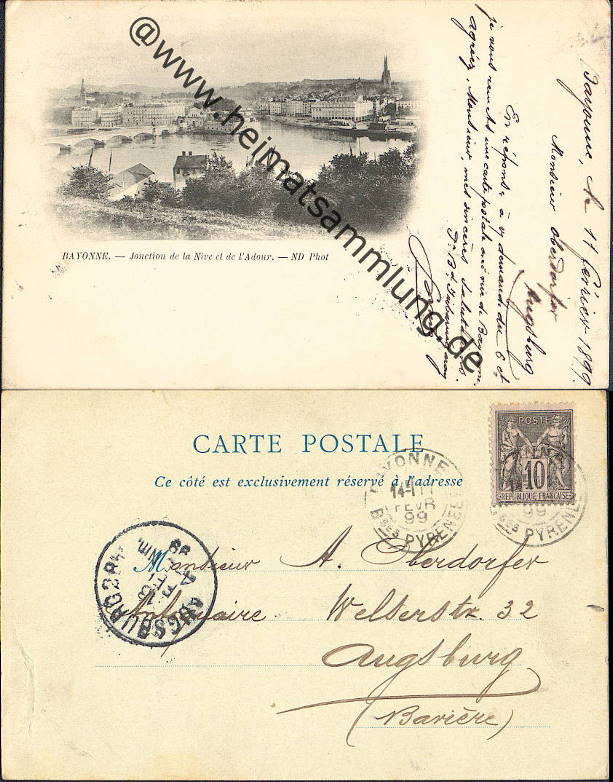 @www.heimatsammlung.de
BAYONNE. — Jonction de la Nive et de l'Adour. — ND Phot
Bayonne, le 11 février 1899
Monsieur Oberdorfer
Augsburg
En réponse à v/ demande du 6 ct
je vous remets une carte postale avec vue de Bayonne
agréez, Monsieur, mes sincères salutations
CARTE POSTALE
Ce côté est exclusivement réservé à l'adresse
POSTE
10
REPUBLIQUE FRANÇAISE
BAYONNE
14-
FEVR
99
Bses PYRENEES
99
Bses PYRENEES
AUGSBURG 2
FEB
99
Monsieur A. Oberdorfer
Welserstr. 32
Augsburg
(Bavière)